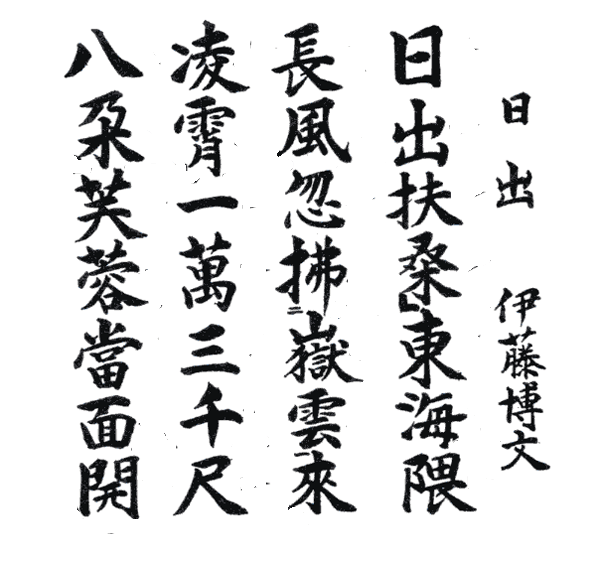 日出 伊藤博文
日出扶桑東海隈
長風忽拂嶽雲來
凌霄一萬三千尺
八朶芙蓉當面開